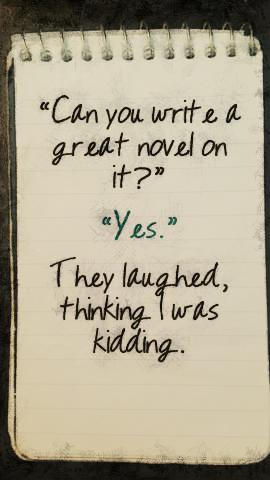 “Can you write a
great novel on
it?”
“Yes.”
They laughed,
thinking I was
kidding.